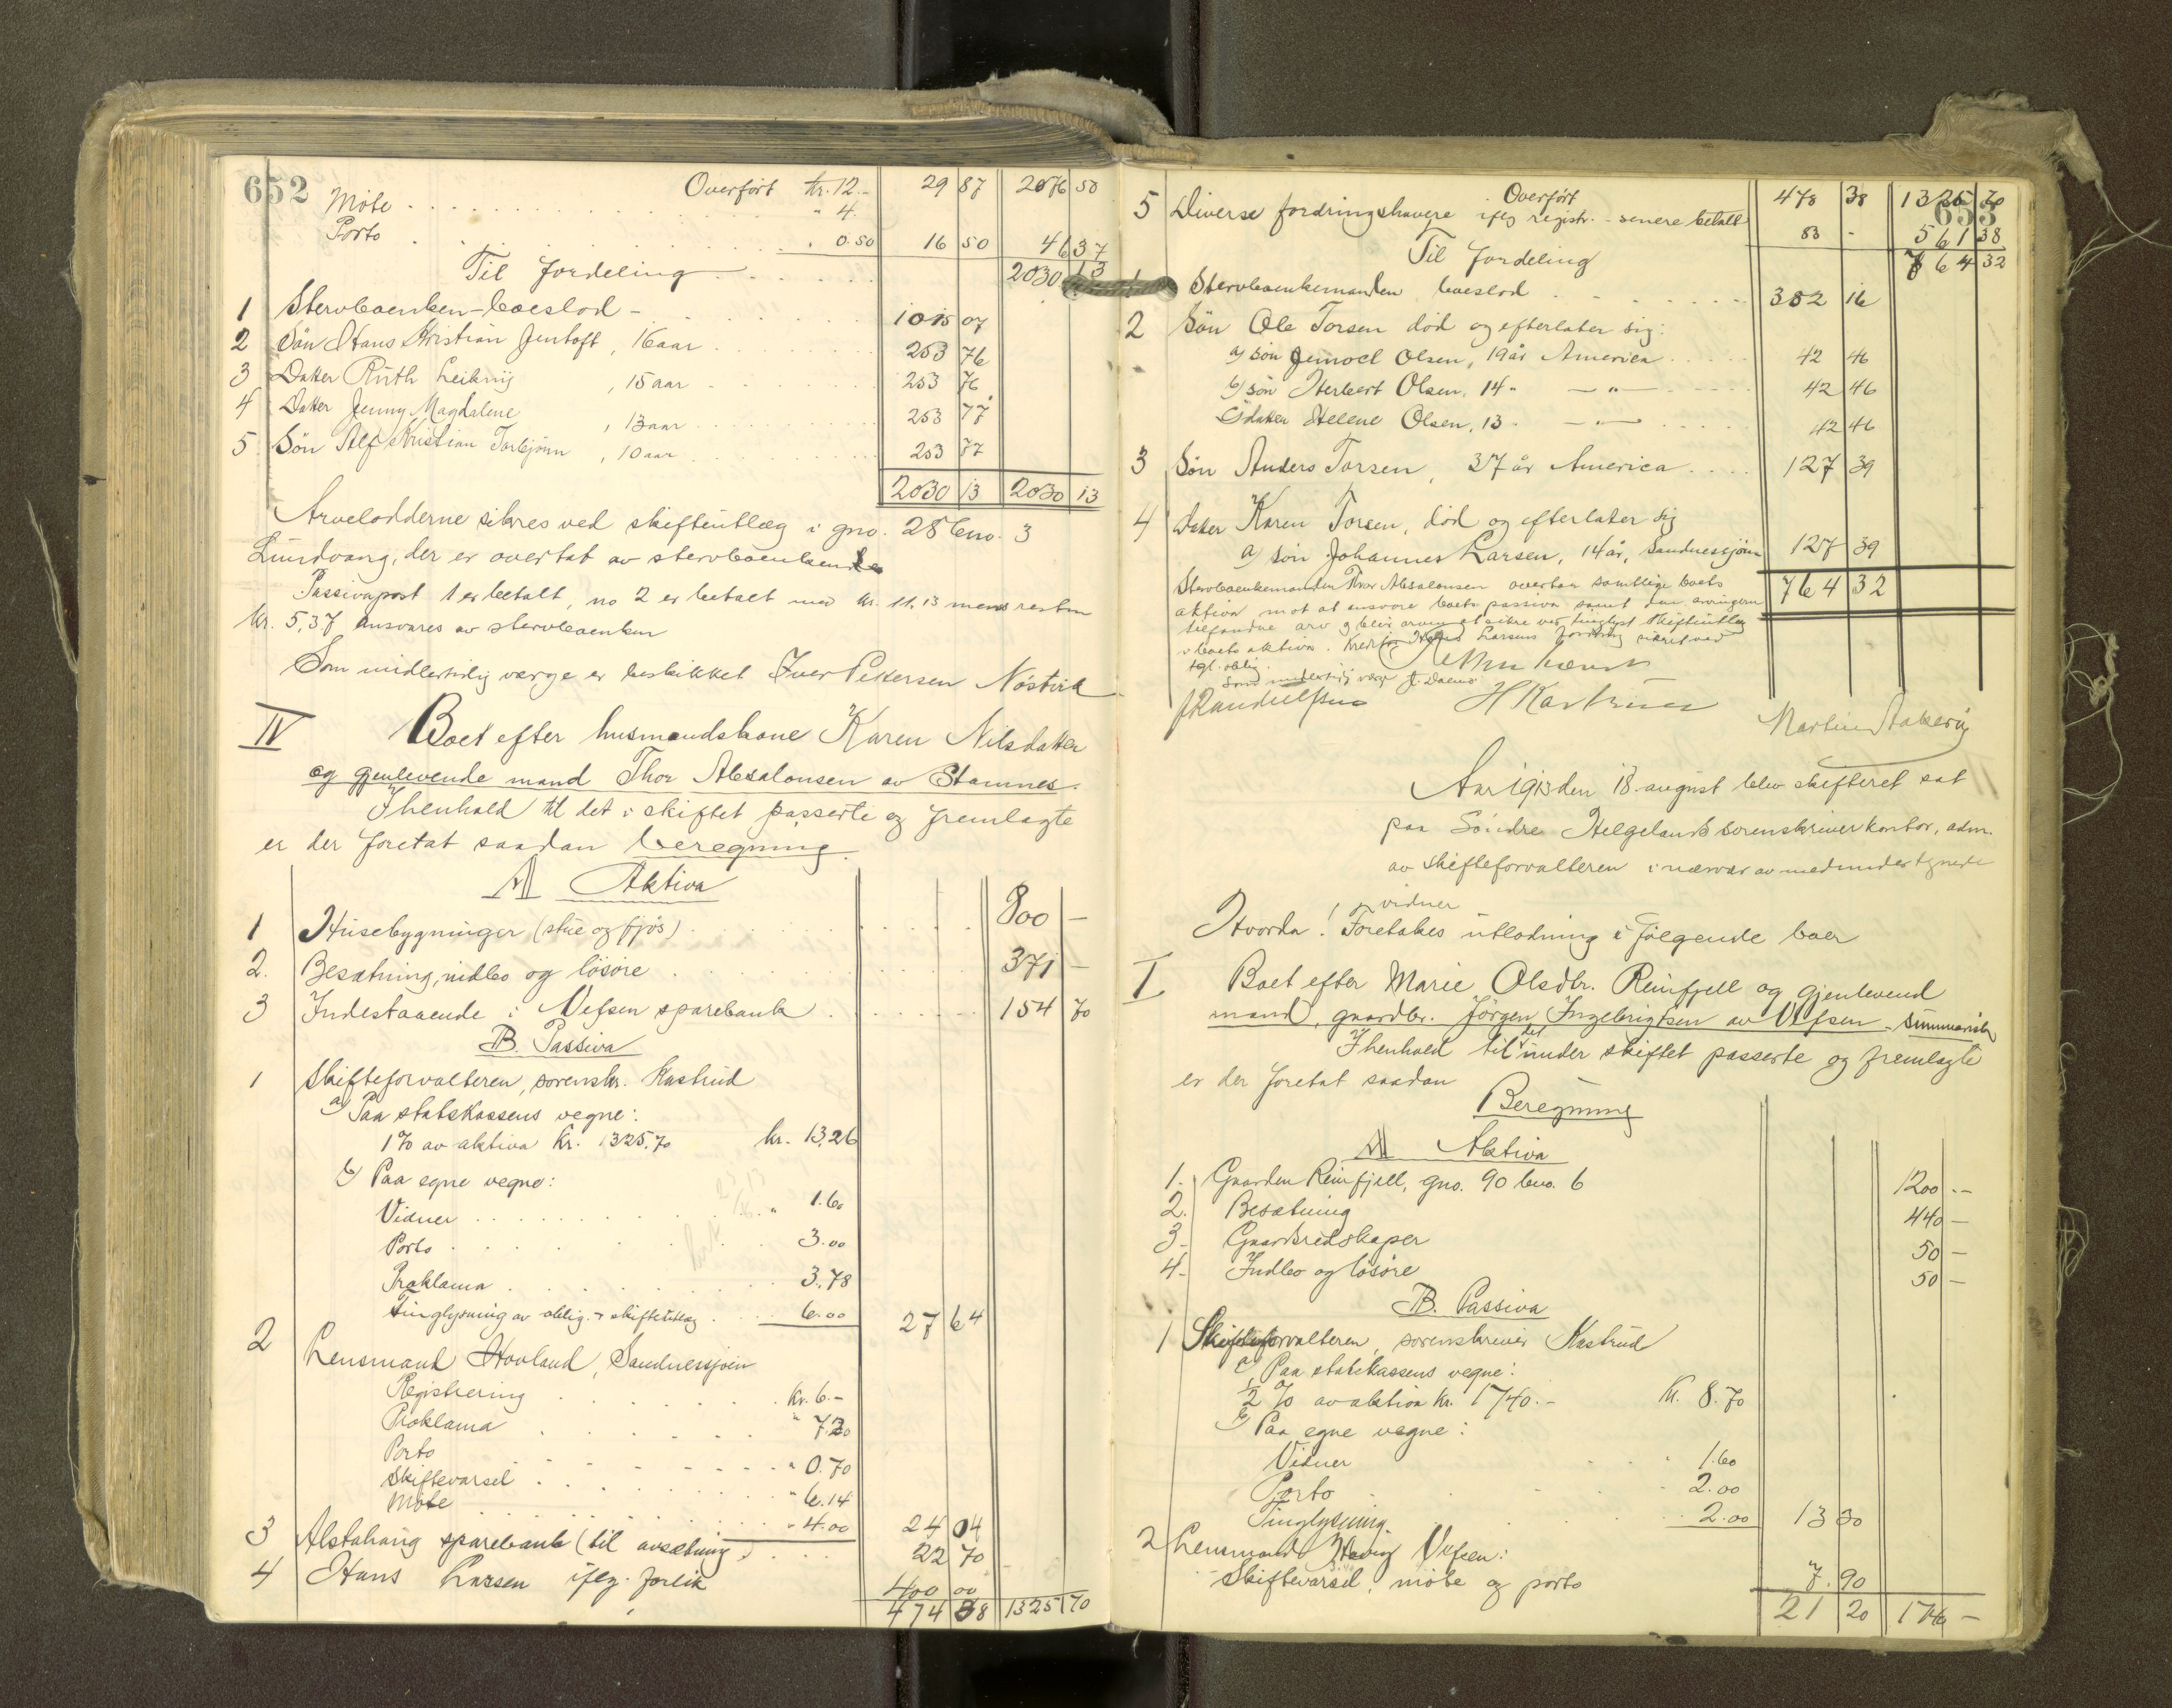 652
Overført kr. 12.- 29 87 2076 50
Møte " 4.
Porto " 0.50 16 50 46 37
Til fordeling 2030 13
1 Stervboenken - boeslod - 1015 07
2 Søn Hans Kristian Jentoft, 16 aar 253 76
3 Datter Ruth Leikny, 15 aar 253 76
4 Datter Jenny Magdalene, 13 aar 253 77
5 Søn Alf Kristian Torbjørn, 10 aar 253 77
2030 13 2030 13
Arvelodderne sikres ved skifteutlæg i gno. 28 bno. 3
Lundvang, der er overtat av stervboenken
Passivapost 1 er betalt, no 2 er betalt med kr. 11.13 mens resten
kr. 5,37 ansvares av stervboenken
Som midlertidig værge er beskikket Iver Petersen Nøstvik
IV Boet efter husmandskone Karen Nilsdatter
og gjenlevende mand Thor Absalonsen av Stamnes.
I henhold til det i skiftet passerte og fremlagte
er der foretat saadan beregning.
A Aktiva
1 Husebygninger (stue og fjøs) 800 -
2. Besætning, indbo og løsøre 371 -
3 Indestaaende i Vefsen sparebank 154 70
B. Passiva
1 Skifteforvalteren, sorenskr. Kastrud
a) Paa statskassens vegne:
1% av aktiva kr. 1325.70 kr. 13.26
b) Paa egne vegne:
Vidner " 1.60
Porto 3.00
Proklama 3.78
Tinglysning av oblig. & skifteutlæg 6.00 27 64
2 Lensmand Hovland, Sandnessjøen
Registrering kr. 6.-
Proklama " 7.20
Porto " 0.70
Skiftevarsel " 6.14
Møte " 4.00 24 04
3 Alstahaug sparebank (til avsætning) 22 70
4 Hans Larsen iflg. forlik 400 00
474 38 1325 70
653
Overført 478 38 1325 70
5 Diverse fordringshavere iflg registr. - senere betalt 83 - 561 38
Til fordeling 764 32
1 Stervboenkemanden boeslod 382 16
2 Søn Ole Torsen død og efterlater sig:
a) søn Jemoel Olsen, 19 år America 42 46
b) søn Herbert Olsen, 14 " - " - 42 46
c) datter Helene Olsen, 13 " - " - 42 46
3 Søn Anders Torsen, 37 år America 127 39
4 Datter Karen Torsen, død og efterlater sig
a) søn Johannes Larsen, 14 år, Sandnessjøen 127 39
Stervboenkemanden Thor Absalonsen overtar samtlige boets 764 32
aktiva mot at ansvare boets passiva samt den arvingerne
tilfaldne arv og blir arven at sikre ved tinglyst skifteutlæg
i boets aktiva. Kreditor Hans Larsens fordring sikret ved
tgl. oblig.
Som midlertidig værge
H Kastrud
Martin
Aar 1913 den 18. august blev skifteret sat
paa Søndre Helgelands sorenskriverkontor, adm.
av skifteforvalteren i nærvær av medundertegnede
vidner
Hvorda! Foretokes utlodning i følgende boer
I Boet efter Marie Olsdtr. Reinfjell og gjenlevend
mand, gaardbr. Jørgen Ingebrigtsen av Vefsen - summarisk
I henhold til det under skiftet passerte og fremlagte
er der foretat saadan
Beregning
A Aktiva
1. Gaarden Reinfjell, gno. 90 bno. 6 1200 --
2. Besætning 440 -
3- Gaardsredskaper 50 -
4- Indbo og løsøre 50 -
B. Passiva
1 Skifteforvalteren, sorenskriver Kastrud
a) Paa statskassens vegne:
1/2 % av aktiva kr. 1740.- kr. 8.70
b) Paa egne vegne:
Vidner " 1.60
Porto " 2.00
Tinglysning 2.00 13 30
2 Lensmand Vefsen:
Skiftevarsel, møte og porto 7. 90
21 20 1740 -